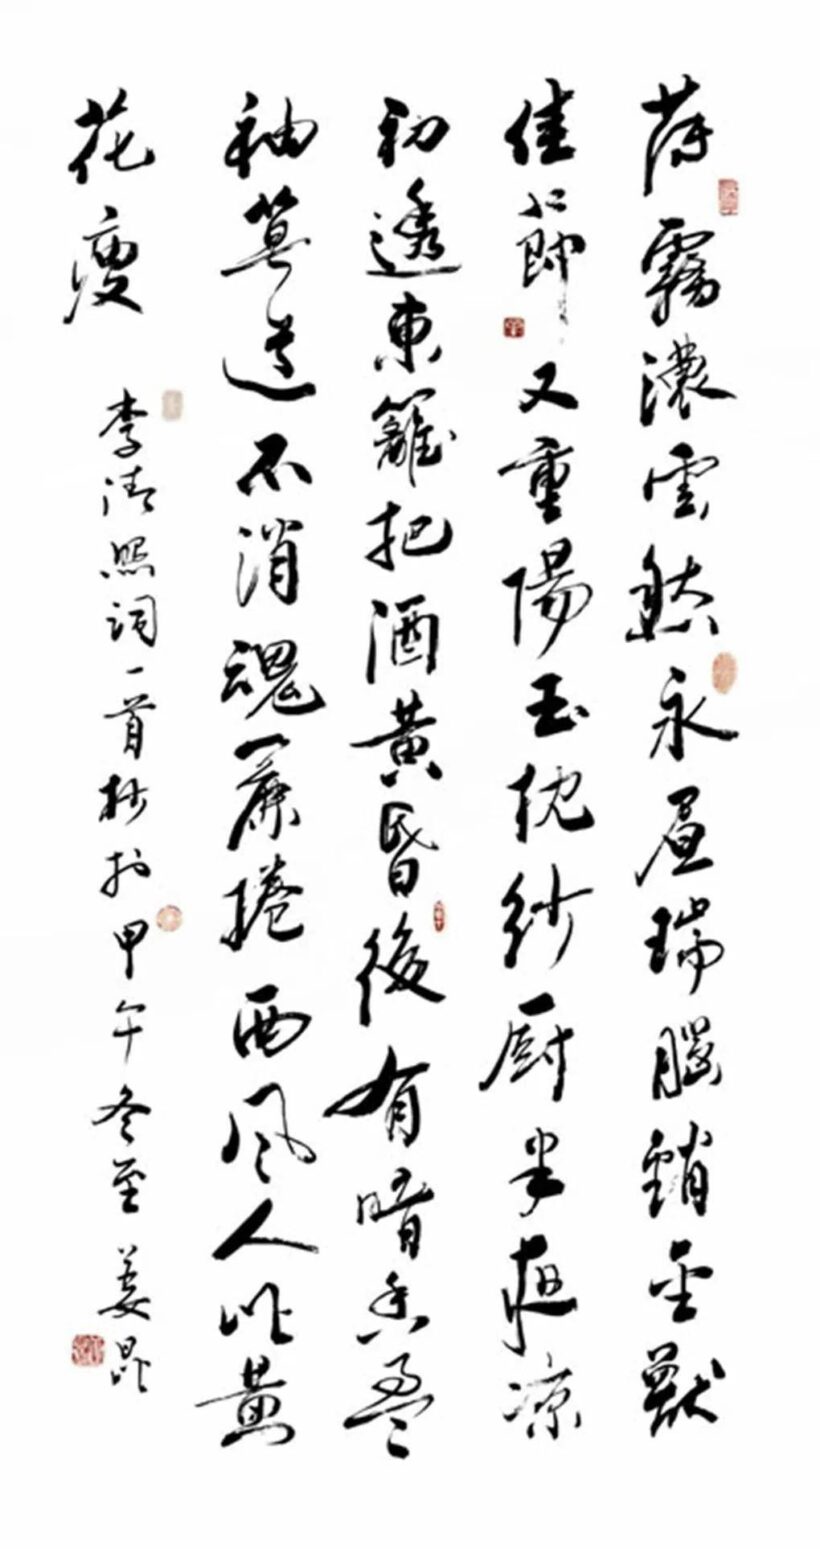 薄霧濃雲愁永昼瑞腦銷金獸
佳節又重陽玉枕紗厨半夜凉
初透東籬把酒黄昬後有暗香盈
袖莫道不消魂簾捲西風人比黄
花瘦
李清照詞一首抄於甲午冬至 姜昆